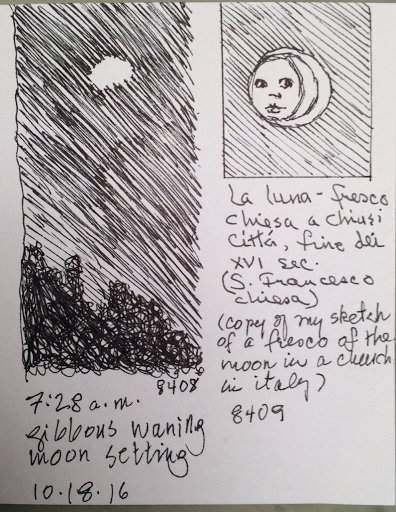 8408
7:28 a.m.
gibbous waning
moon setting
10.18.16
La luna - fresco
chiesa a chiusi
città, fine dei
XVI sec.
(S. Francesco
chiesa)
(copy of my sketch
of a fresco of the
moon in a church
in italy)
8409